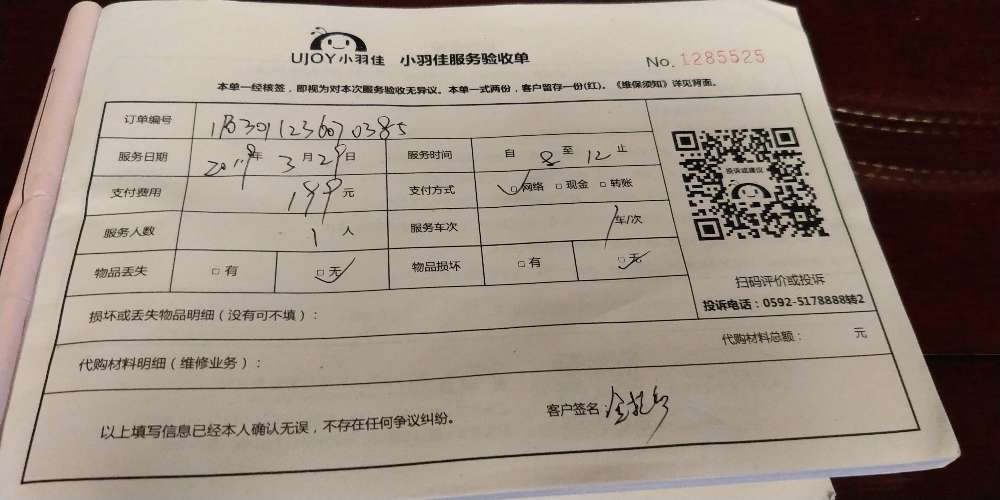 UJOY小羽佳 小羽佳服务验收单 No. 1285525
本单一经核签，即视为对本次服务验收无异议。本单一式两份，客户留存一份(红)。《维保须知》详见背面。
订单编号
服务日期 2019年 3月29日 服务时间 自 8 至 12 止
支付费用 199 元 支付方式 □网络 □现金 □转账
服务人数 1 人 服务车次 / 车/次
物品丢失 □有 □无 物品损坏 □有 □无
投诉或建议
扫码评价或投诉
投诉电话：0592-5178888转2
损坏或丢失物品明细（没有可不填）：
代购材料明细（维修业务）： 代购材料总额： 元
以上填写信息已经本人确认无误，不存在任何争议纠纷。 客户签名：